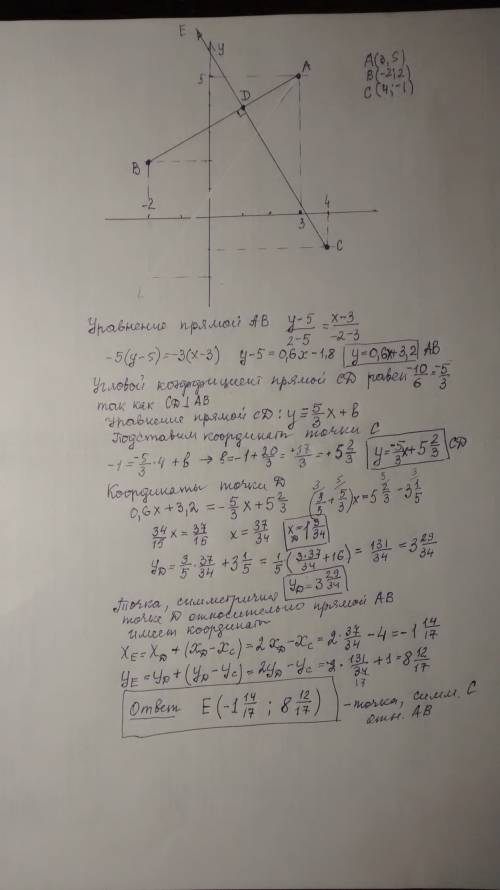 E
y
A
5
D
B
-2
3
4
C
A(3,5)
B(-2;2)
C(4;-1)
Уравнение прямой AB (y-5)/(2-5) = (x-3)/(-2-3)
-5(y-5)=-3(x-3) y-5=0,6x-1,8 y=0,6x+3,2 AB
Угловой коэффициент прямой CD равен -10/6 = -5/3
так как CD⊥AB
Уравнение прямой CD: y=-5/3 x+b
Подставим координат точки C
-1=-5/3·4+b → b=-1+20/3=+17/3=+5 2/3 y=-5/3 x+5 2/3 CD
Координаты точки D
0,6x+3,2=-5/3 x+5 2/3 (3/5+5/3)x=5 2/3-3 1/5
34/15 x=37/15 x=37/34 x_D=1 3/34
y_D=3/5·37/34+3 1/5=1/5(3·37/34+16)=131/34=3 29/34
y_D=3 29/34
Точка, симметричная
точке D относительно прямой AB
имеет координат
x_E=x_D+(x_D-x_C)=2x_D-x_C=2·37/34-4=-1 14/17
y_E=y_D+(y_D-y_C)=2y_D-y_C=2·131/34+1=8 12/17
Ответ E(-1 14/17; 8 12/17) -точка, симм. C
отн. AB